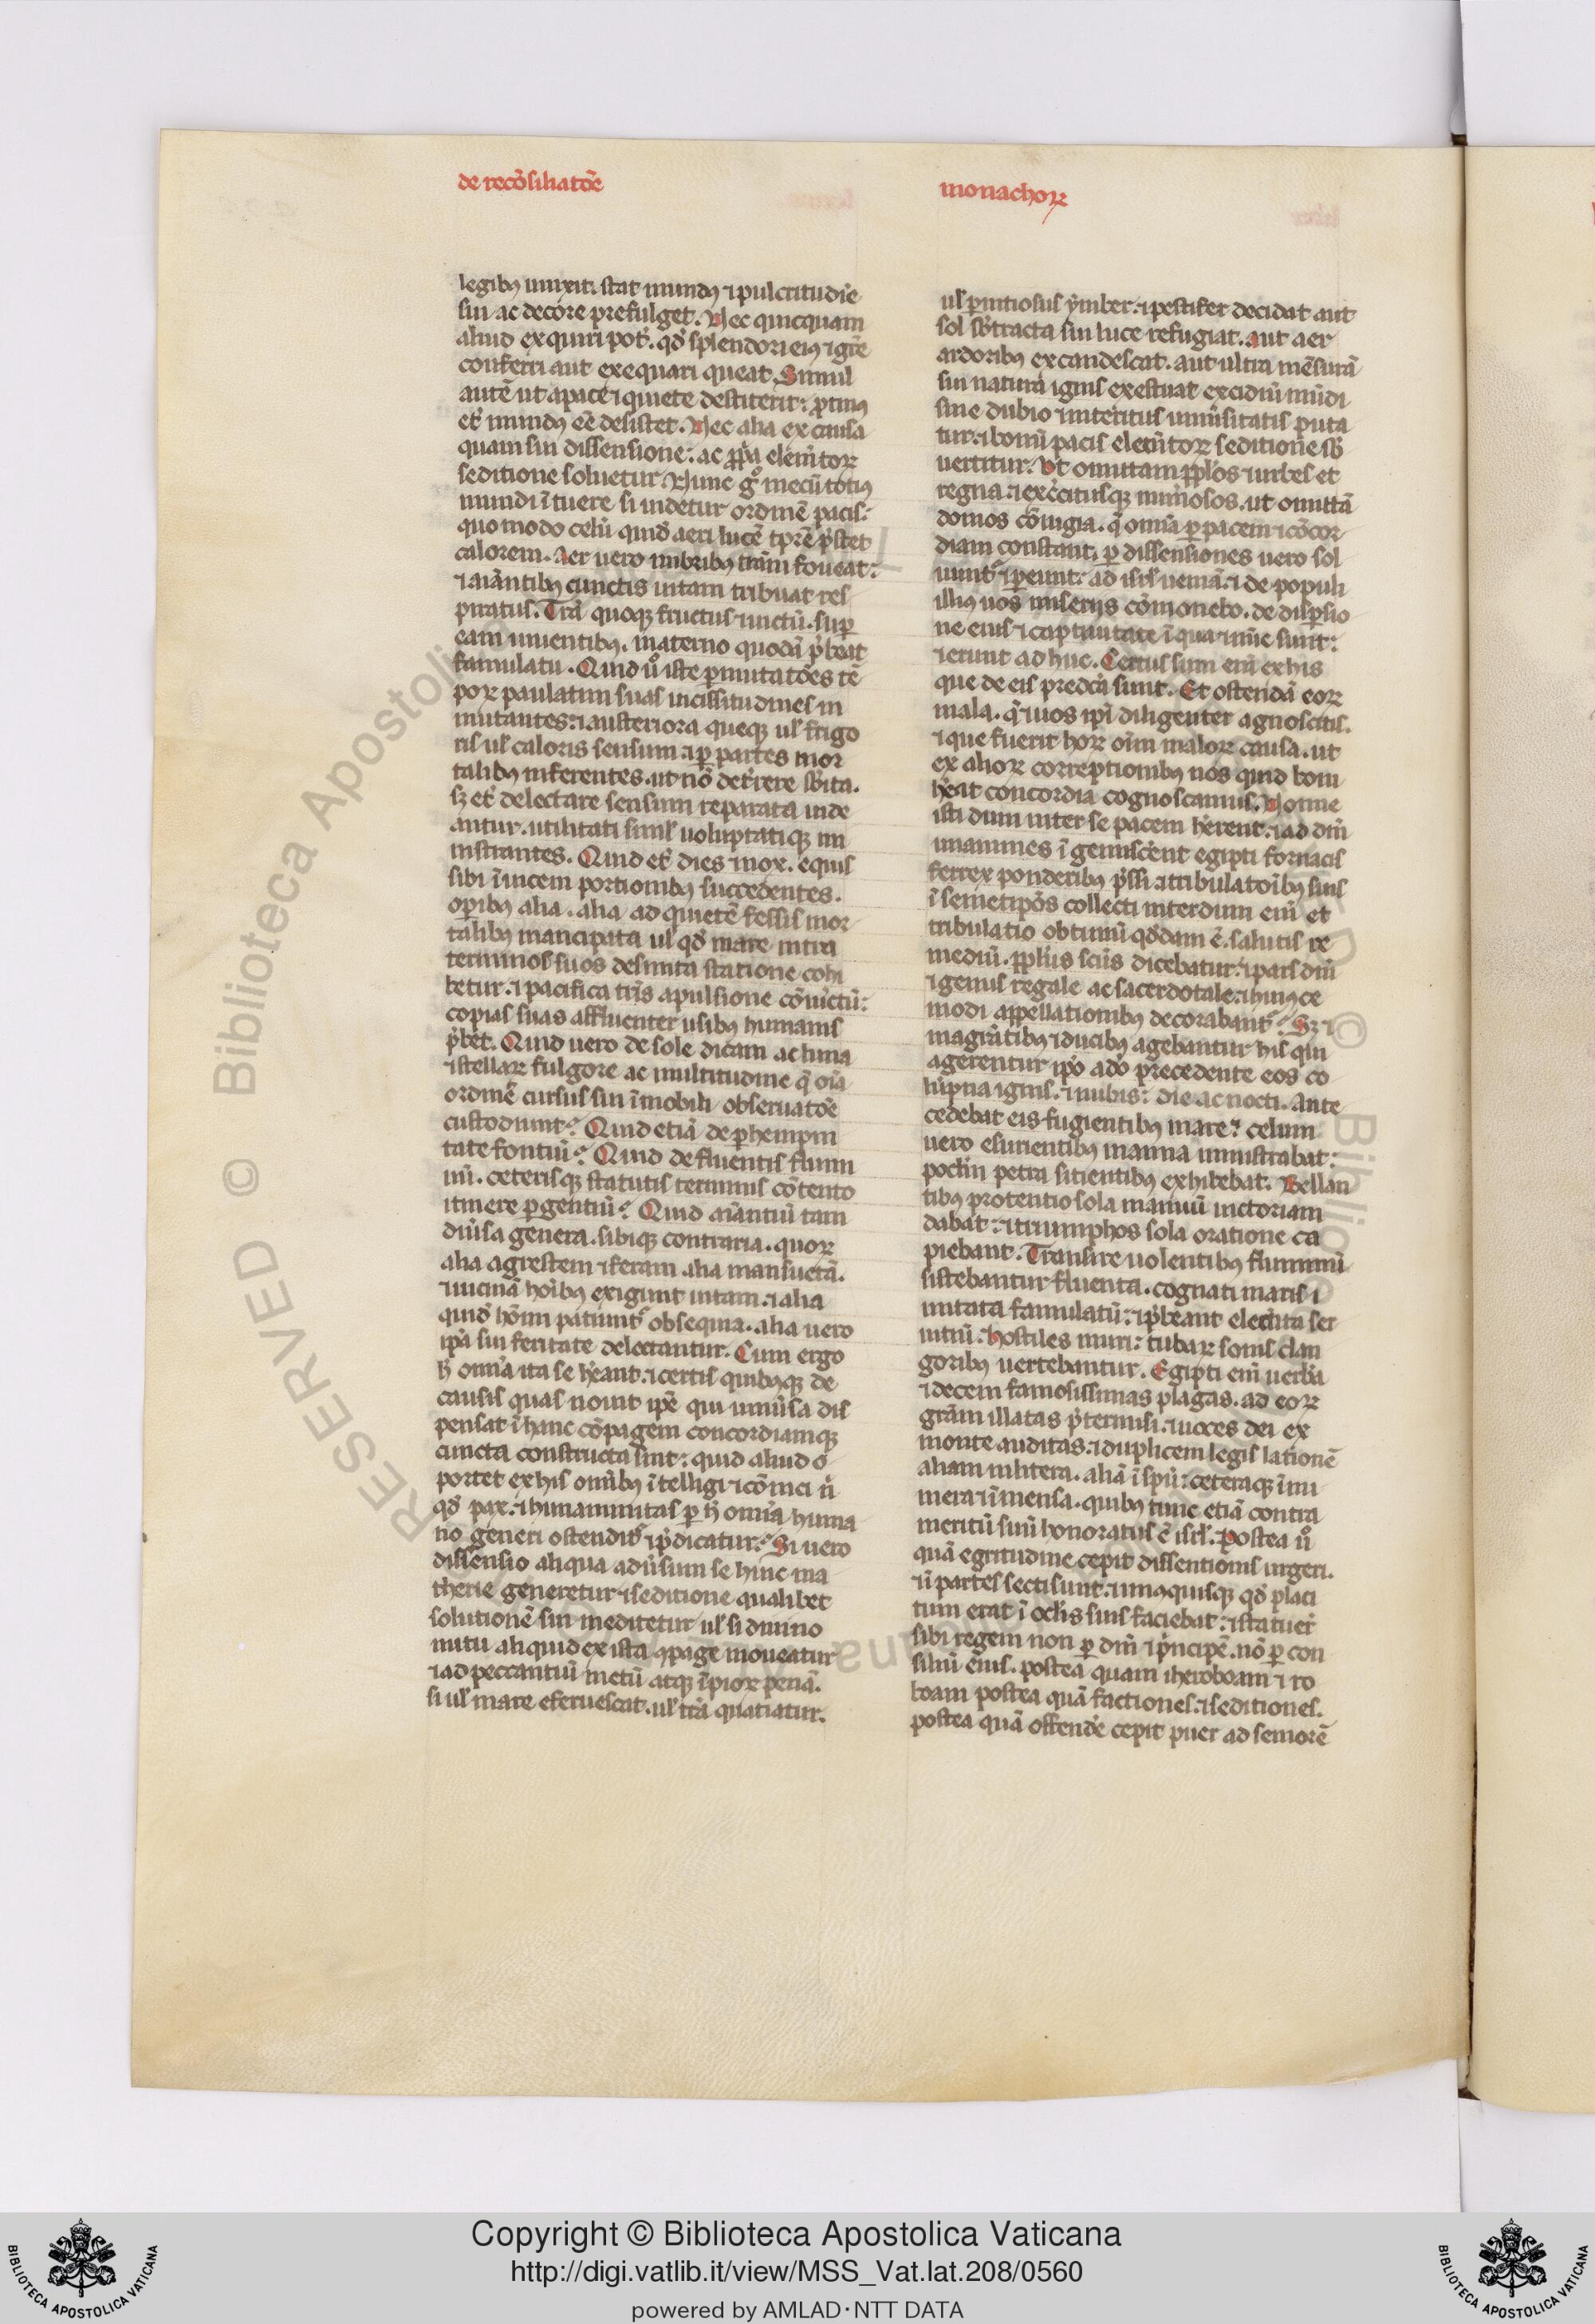 de recōsiliatōe
legibꝰ uinxit. stat mundꝰ ⁊ pulcritudīe
sui ac decore prefulget. Nec quicquam
aliud exquiri pot̄. qd̓ splendori eiꝰ ⁊ gr̄e
conferri aut exequari queat. Simul
autē ut a pace ⁊ quiete destiterit: ꝓtinꝰ
et̓ mundꝰ eē desistet. Nec alia ex causa
quam sui dissensione: ac ꝓpͥa elem̄toꝝ
seditione soluetur. Nunc gͦ mecū totiꝰ
mundi ītuere si uidetur ordinē pacis:
quomodo celū quid̓ aeri lucē tp̄rē p̄stet
calorem. Aer uero imbribꝰ trām foueat:
⁊ aiāntibꝰ cunctis uitam tribuat res
piratus. Tr̄a quoqꝫ fructus ⁊ uictū. suꝑ
eam uiuentibꝰ. materno quodā p̄beat
famulatu. Quid u̓o iste ꝑmutatōes tē
poꝝ paulatim suas uicissitudines in
mutantes: ⁊ austeriora queqꝫ ul̓ frigo
ris ul̓ caloris sensum. ⁊ ꝑ partes mor
talibꝰ inferentes. ut nō det̓rere sb̓ita.
sꝫ et̓ delectare sensum reparata uide
antur. utilitati siml̓ uoluptatiqꝫ mi
nistrantes. Quid et̓ dies ⁊ nox. equis
sibi īuicem portionibꝰ succedentes.
oꝑibꝰ alia. alia ad quietē fessis mor
talibꝰ mancipata ul̓ qd̓ mare intra
terminos suos definita statione cohi
betur. ⁊ pacifica tr̄is apulsione cōuictū:
copias suas affluenter usibꝰ humanis
p̄bet. Quid uero de sole dicam ac luna
⁊ stellaꝝ fulgore ac multitudine q̄ oīa
ordinē cursus sui īmobili obseruatōe
custodiunt? Quid etiā de ꝑhempni
tate fontiū? Quid de fluentis flumi
nū. ceterisqꝫ statutis terminis cōtento
itinere ꝑgentiū? Quid aiāntiū tam
diu̓sa genera. sibiqꝫ contraria. quoꝝ
alia agrestem ⁊ feram alia mansuetā.
⁊ uicinā hoībꝰ exigunt uitam. ⁊ alia
quid̓ hoīni patiunt̓ obsequia. alia uero
ip̄a sui feritate delectantur. Cum ergo
h̓ omīa ita se hēant. ⁊ certis quibꝰqꝫ de
causis quas nouit ip̄e qui uniu̓sa dis
pensat ī hanc cōpagem concordiamqꝫ
cuncta constructa sint: quid aliud o
portet ex his omībꝰ ītelligi ⁊ cōuici n̄
qd̓ pax. ⁊ hunanimitas ꝑ h̓ omīa huma
no generi ostendit̓ ⁊ p̄dicatur? Si uero
dissensio aliqua adu̓sum se hinc ma
therie generetur ⁊ seditione qualibet
solutionē sui meditetur ul̓ si diuino
nutu aliquid ex ista ꝯpage moueatur
⁊ ad peccantiū metū atqꝫ īpioꝝ penā.
si ul̓ mare eferuescat. ul̓ tr̄a quatiatur.
monachoꝝ
ul̓ ꝑnitiosus ymber. ⁊ pestifer decidat aut
sol sb̓tracta sui luce refugiat. aut aer
ardoribꝰ excandescat. aut ultra mēsurā
sui naturā ignis exestuat excidiū mūdi
sine dubio ⁊ interitus uniu̓sitatis puta
tur. ⁊ bonū pacis elem̄toꝝ seditione sb̓
uertitur. Ut omittam ppl̓os ⁊ urbes et
regna. ⁊ exc̓citusqꝫ num̓osos. ut omittā
domos cōiugia. q̄ omīa ꝑ pacem ⁊ cōcor
diam constant. ꝑ dissensiones uero sol
uunt̓ ⁊ ꝑeunt: ad isrl̓ ueniā. ⁊ de populi
illiꝰ uos miserijs cōmonebo. de disꝑsio
ne eius ⁊ captiuitate ī qua ⁊ nūc sunt:
⁊ erunt adhuc. Certus sum enī ex his
que de eis predc̄a sunt. Et ostendā eoꝝ
mala. q̄ ⁊ uos ip̄i diligenter agnoscitis.
⁊ que fuerit hoꝝ oīm maloꝝ causa. ut
ex alioꝝ correptionibꝰ nos quid boni
hēat concordia cognoscamus. Nonne
isti dum inter se pacem hērent. ⁊ ad dm̄
unanimes īgemiscēnt egipti fornacis
ferrex ponderibꝰ p̄ssi ⁊ tribulatoībꝰ suis
ī semetip̄os collecti interdum enī et
tribulatio obtimū qd̓dam ē. salutis re
mediū. ppl̓us sc̄us dicebatur. ⁊ pars dn̄i
⁊ genus regale ac sacerdotale. ⁊ huiꝰce
modi appellationibꝰ decorabant̓? Sꝫ ⁊
magrātibꝰ ⁊ ducibꝰ agebantur his qui
agerentur ip̄o a do̓ precedente eos co
lūpna ignis. ⁊ nubis: die ac nocti. Ante
cedebat eis fugientibꝰ mare? celum
uero esurientibꝰ manna ministrabat:
poclm̄ petra sitientibꝰ exhibebat. Bellan
tibꝰ protentio sola manuū uictoriam
dabat: ⁊ triumphos sola oratione ca
piebant. Transire uolentibꝰ fluminū
sistebantur fluenta. cognati maris i
mitata famulatū: ⁊ p̄bēant electita ser
uitiū: hostiles muri: tubaꝝ sonis clan
goribꝰ uertebantur. Egipti enī uerb̓a
⁊ decem famosissimas plagas. ad eoꝝ
grām illatas p̄termisi. ⁊ uoces dei ex
monte auditas. ⁊ duplicem legis lationē
aliam in litera. aliā ī spū: ceteraqꝫ īnu
mera ⁊ īmensa. quibꝰ tunc etiā contra
meritū suū honoratus ē isrl̓. Postea u̓o
quā egritudine cepit dissentionis urgeri.
⁊ ī partes secti sunt. ⁊ unaquisqꝫ qd̓ placi
tum erat ī ocl̓is suis faciebat: ⁊ statuer̄
sibi regem non ꝑ dm̄ ⁊ p̄ncipē. nō ꝑ con
siliū eius. postea quam iheroboam ⁊ ro
boam postea quā factiones. ⁊ seditiones.
postea quā offendē cepit puer ad seniorē
Copyright © Biblioteca Apostolica Vaticana
http://digi.vatlib.it/view/MSS_Vat.lat.208/0560
powered by AMLAD·NTT DATA
BIBLIOTECA APOSTOLICA VATICANA
BIBLIOTECA APOSTOLICA VATICANA